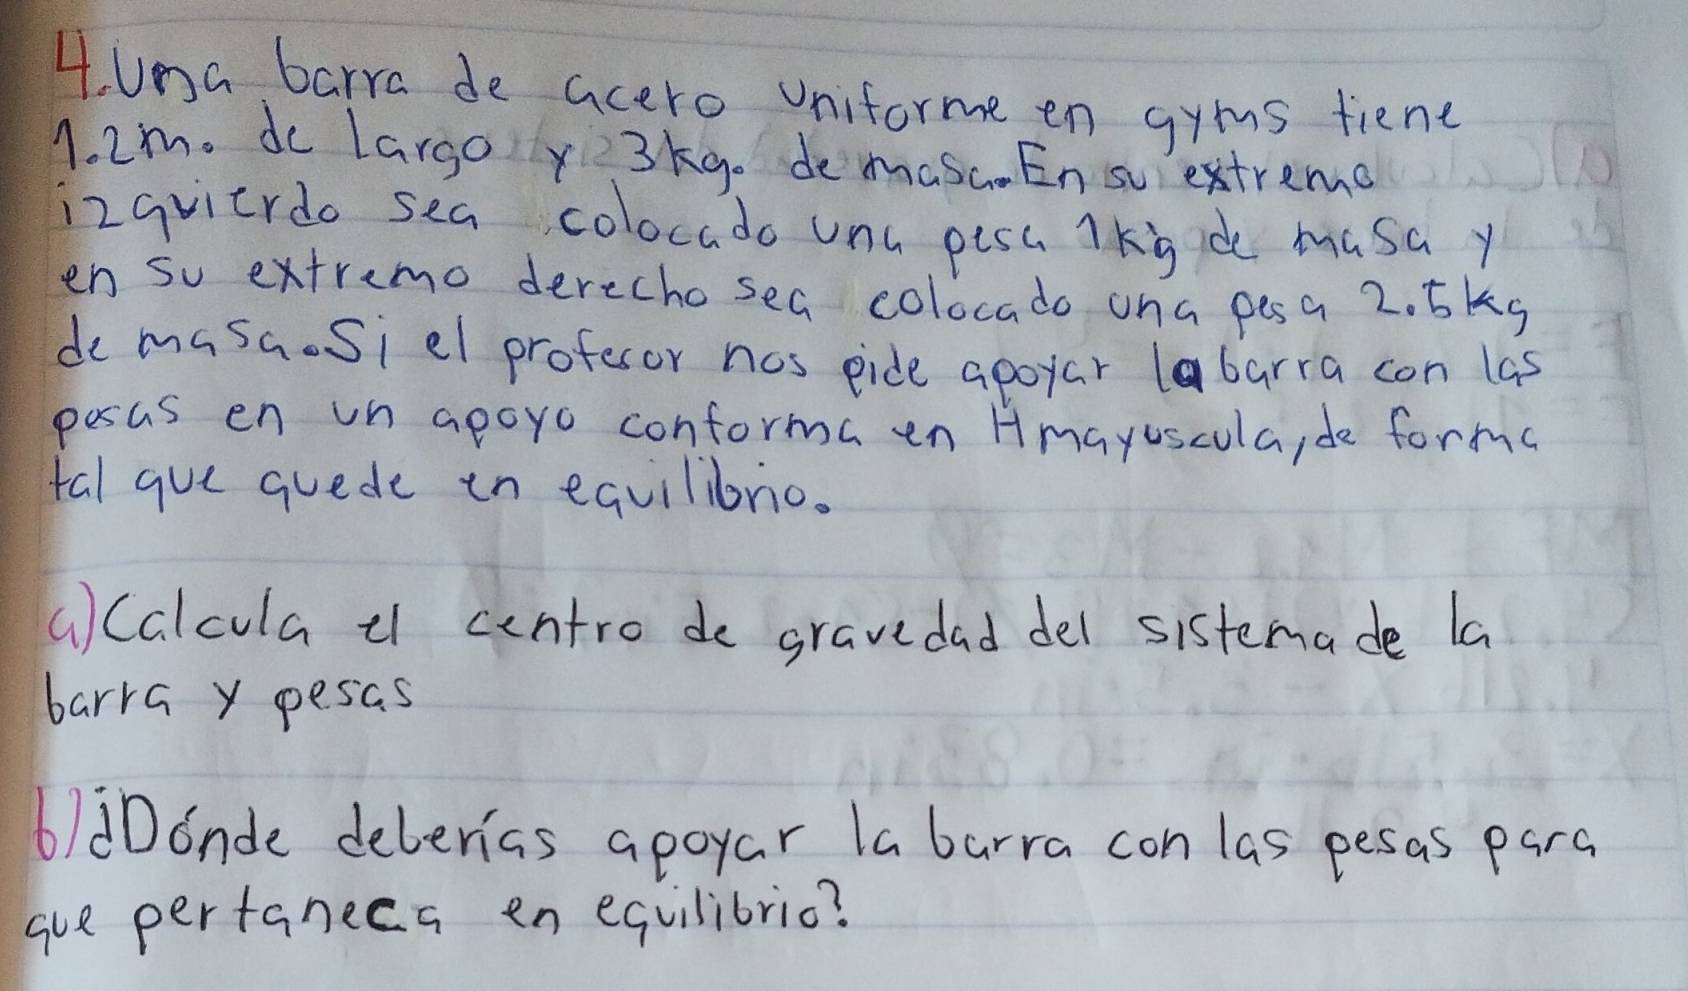 4. Una barra de acero uniforme en gyms tiene
1.2m. de largo y 3kg. de masa. En su extremo
izquierdo sea colocado una pesa 1kg de masa y
en su extremo derecho sea colocado una pesa 2.5kg
de masa. Si el profesor nos pide apoyar la barra con las
pesas en un apoyo conforma en H mayuscula, de forma
tal que quede en equilibrio.
a) Calcula el centro de gravedad del sistema de la
barra y pesas
b) ¿Dónde deberías apoyar la barra con las pesas para
que pertaneca en equilibrio?